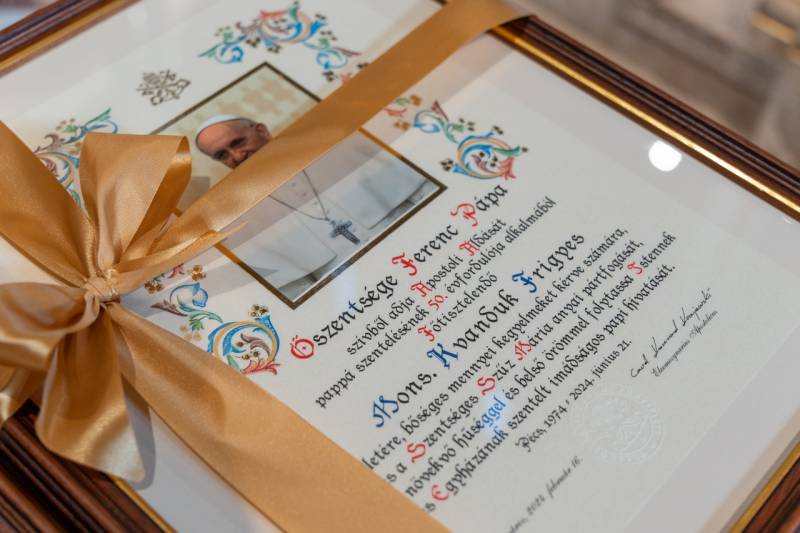 Őszentsége Ferenc Pápa
szívből adja Apostoli Áldását
pappá szentelésének 50. évfordulója alkalmából
Főtisztelendő
Mons. Kvanduk Frigyes
életére, bőséges mennyei kegyelmeket kérve számára,
s a Szentséges Szűz Mária anyai pártfogását,
növekvő hűséggel és belső örömmel folytassa Istennek
s Egyházának szentelt imádságos papi hivatását.
Pécs, 1974 • 2024. június 21.
2024. február 16.